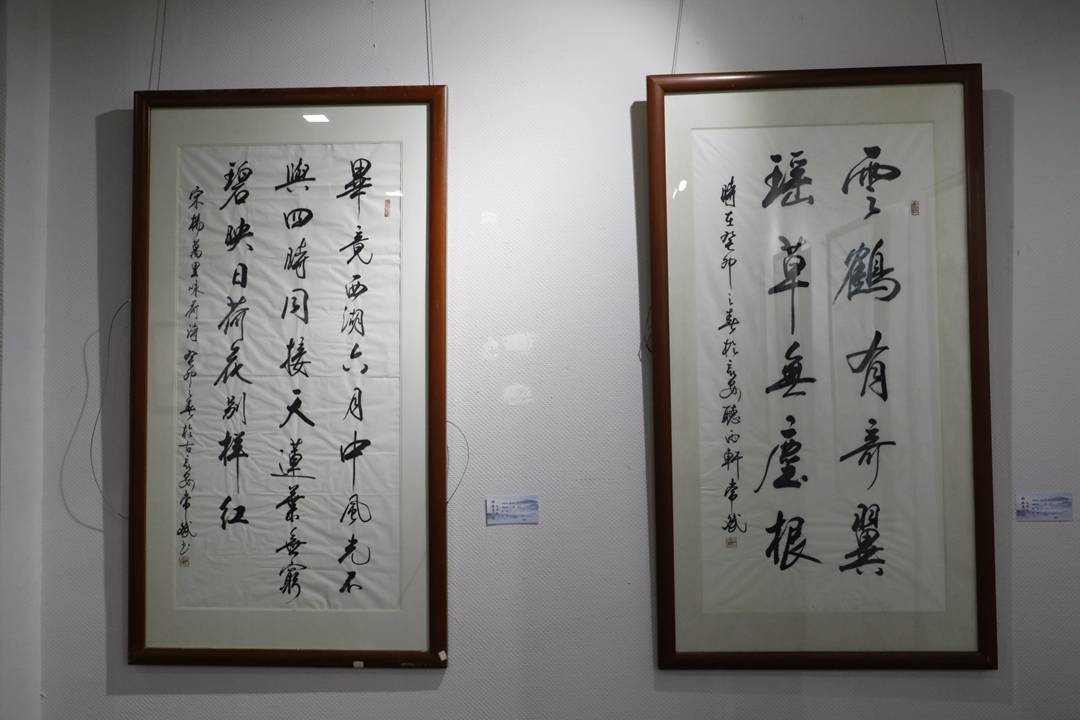 畢竟西湖六月中風光不
與四時同接天蓮葉無窮
碧映日荷花別樣紅
宋楊萬里咏荷詩 癸卯之春於古長安常
雲鶴有奇翼
瑶草無塵根
時在癸卯之春於長安聽雨軒常